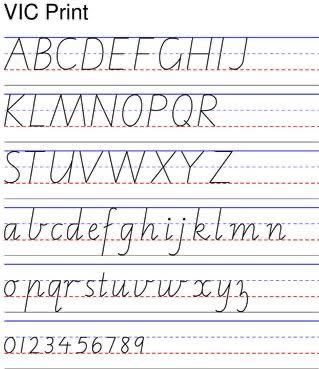 VIC Print
ABCDEFGHIJ
KLMNOPQR
STUVWXYZ
abcdefghijklmn
opqrstuvwxyz
0123456789